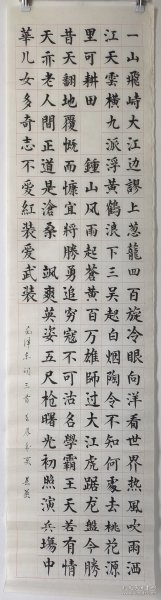 一山飛峙大江边躍上葱蘢四百旋冷眼向洋看世界热風吹雨洒
江天雲橫九派浮黃鶴浪下三吴起白烟陶令不知何處去桃花源
里可耕田 鍾山風雨起蒼黃百万雄師過大江虎踞龙盤今勝
昔天翻地覆慨而慷宜將勝勇追窮寇不可沽名學霸王天若有情
天亦老人間正道是滄桑 颯爽英姿五尺枪曙光初照演兵場中
華儿女多奇志不愛紅裝愛武裝
毛澤東詞三首